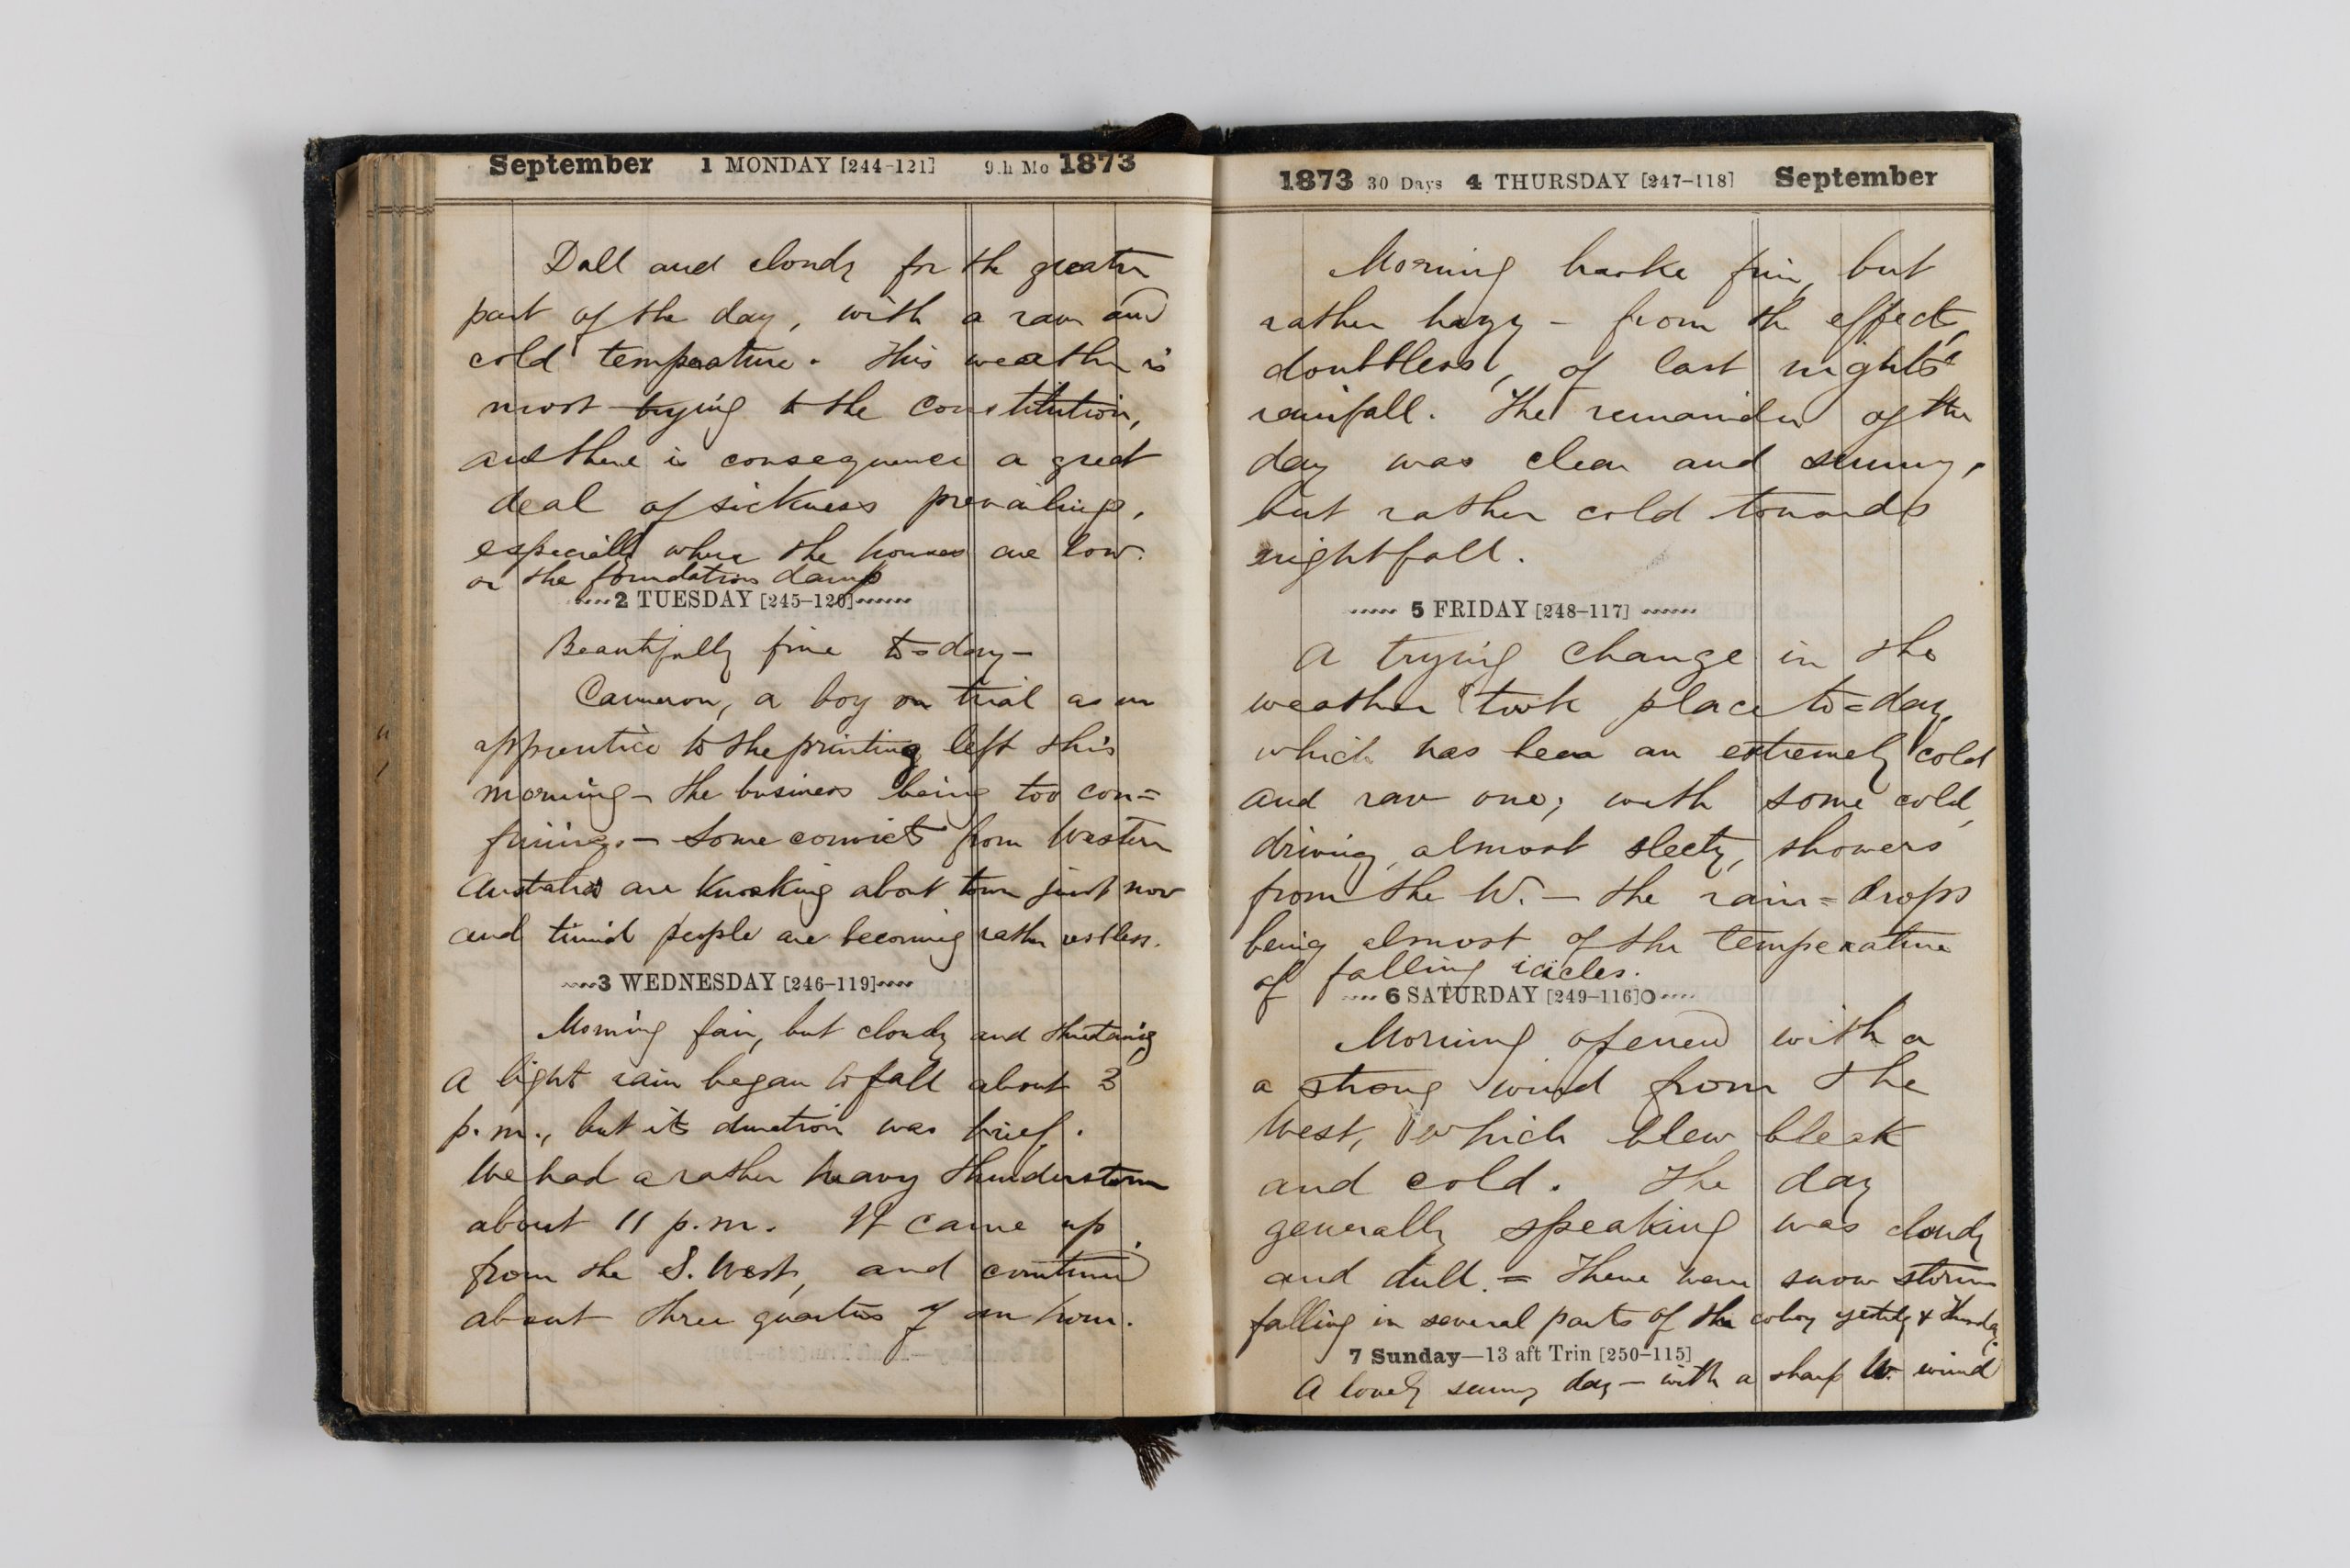 September 1 MONDAY [244-121] 9.h Mo 1873
Dull and cloudy for the greater
part of the day, with a raw and
cold temperature. This weather is
most trying to the constitution,
and there is consequence a great
deal of sickness prevailing,
especially where the houses are low.
or the foundations damp
2 TUESDAY [245-120]
Beautifully fine to=day—
Cameron, a boy on trial as an
apprentice to the printing left this
morning— the business being too con=
fining.— Some convicts from Western
Australia are knocking about town just now
and timid people are becoming rather restless.
3 WEDNESDAY [246-119]
Morning fair, but cloudy and
A light rain began to fall about 3
p.m., but its duration was brief.
We had a rather heavy thunderstorm
about 11 p.m. It came up
from the S. West, and continued
about three quarters of an hour.
1873 30 Days 4 THURSDAY [247-118] September
Morning fine, but
rather hazy — from the effects,
doubtless, of last night's
rainfall. The remainder of the
day was clear and sunny,
but rather cold towards
nightfall.
5 FRIDAY [248-117]
A trying change in the
weather took place to=day,
which has been an extremely cold
and raw one; with some cold,
driving, almost sleety, showers
from the W. — the rain=drops
being almost of the temperature
of falling icicles.
6 SATURDAY [249-116]O
Morning opened with a
a strong wind from the
West, which blew bleak
and cold. The day
generally speaking was cloudy
and dull. = There were snow storms
falling in several parts of the colony yesterdy & Thursday.
7 Sunday—13 aft Trin [250-115]
A lovely sunny day — with a sharp W. wind